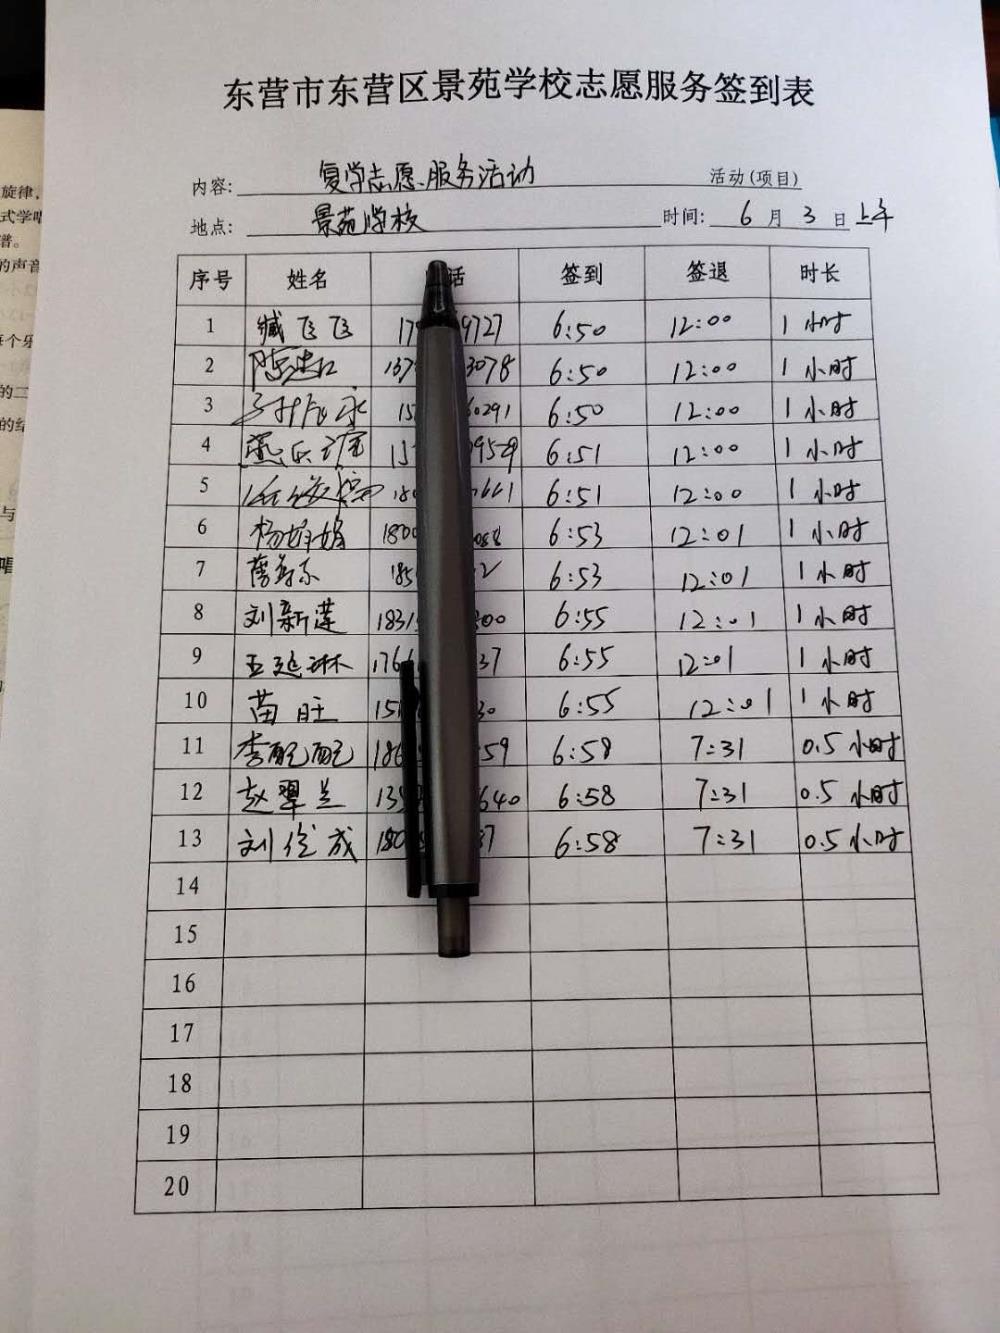 东营市东营区景苑学校志愿服务签到表
内容: 复学志愿服务活动 活动(项目)
地点: 景苑学校 时间: 6月3日上午
序号 姓名 话 签到 签退 时长
1 臧飞飞 17 9727 6:50 12:00 1小时
2 137 3078 6:50 12:00 1小时
3 15 0291 6:50 12:00 1小时
4 15 9529 6:51 12:00 1小时
5 180 661 6:51 12:00 1小时
6 杨娟娟 1800 088 6:53 12:01 1小时
7 185 2 6:53 12:01 1小时
8 刘新莲 1831 00 6:55 12:01 1小时
9 王延琳 176 37 6:55 12:01 1小时
10 苗旺 151 30 6:55 12:01 1小时
11 李配配 186 59 6:58 7:31 0.5小时
12 赵翠兰 135 640 6:58 7:31 0.5小时
13 刘俭成 180 37 6:58 7:31 0.5小时
14
15
16
17
18
19
20
旋律,
式学唱
谱。
的声音
每个乐
的二
的结
与
唱